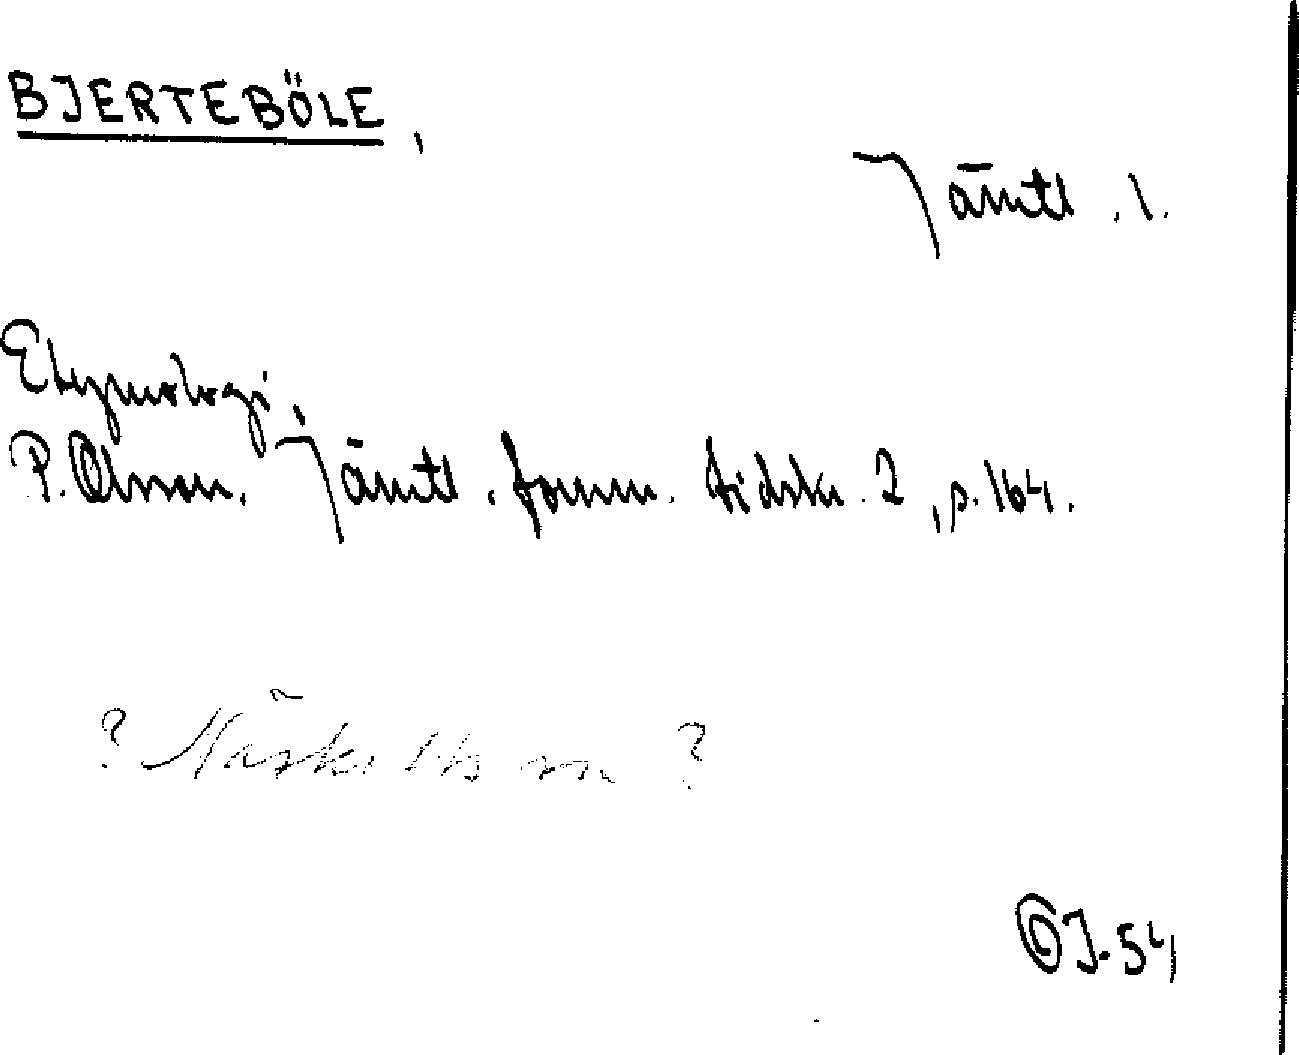 BJERTEBÖLE,
Jämtl. l.
Etymologi.
P. Olsson. Jämtl. fornm. tidskr. 2, s. 164.
? Näskotts sn ?
OJ-54